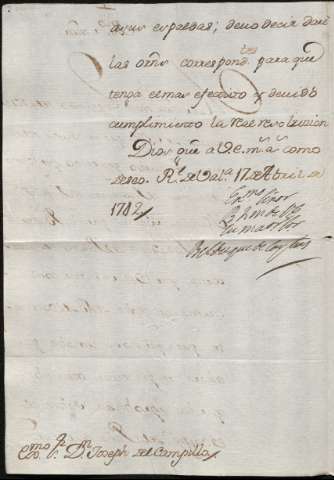 cuyas espaldas; devo decir daré
las orñs correspond.tes para que
tenga el mas efectivo y devido
cumplimiento la Real resolucion
Dios gue a V.E. m.s a.s como
deseo. R.l de Val.a 17 de Abril de
1742
Ex.mo Señor
B. l. m. de V.E.
su maior ser.or
El Duque de Caylus
Ex.mo S.r D.n Joseph del Campillo